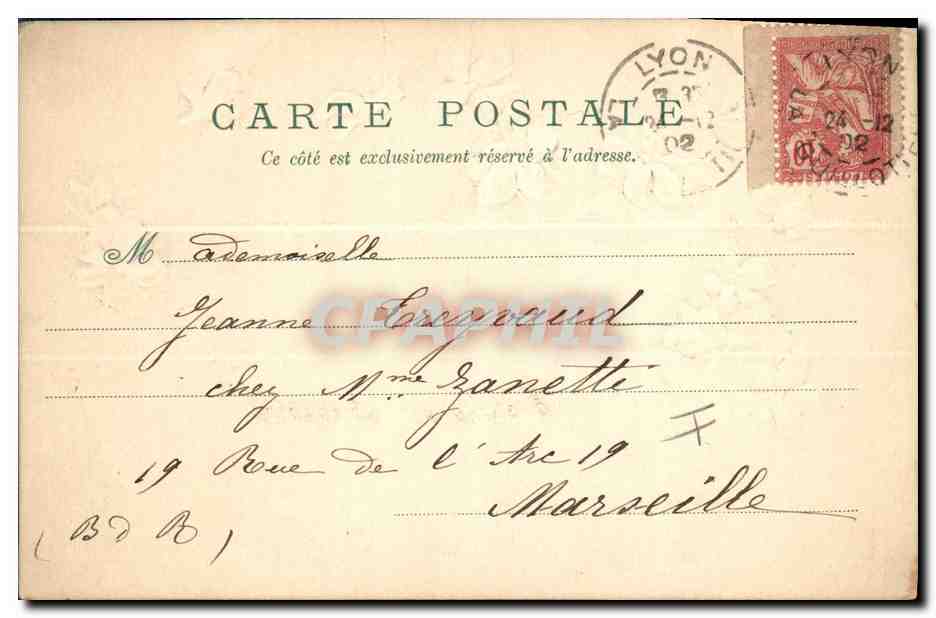 CARTE POSTALE
Ce côté est exclusivement réservé à l'adresse.
LYON
24 - 12
02
LYON
24 - 12
02
Mademoiselle
Jeanne Treyvaud
CPAPHIL
chez Mme Zanetti
19 Rue de l'Arc 19
Marseille
(B d R)